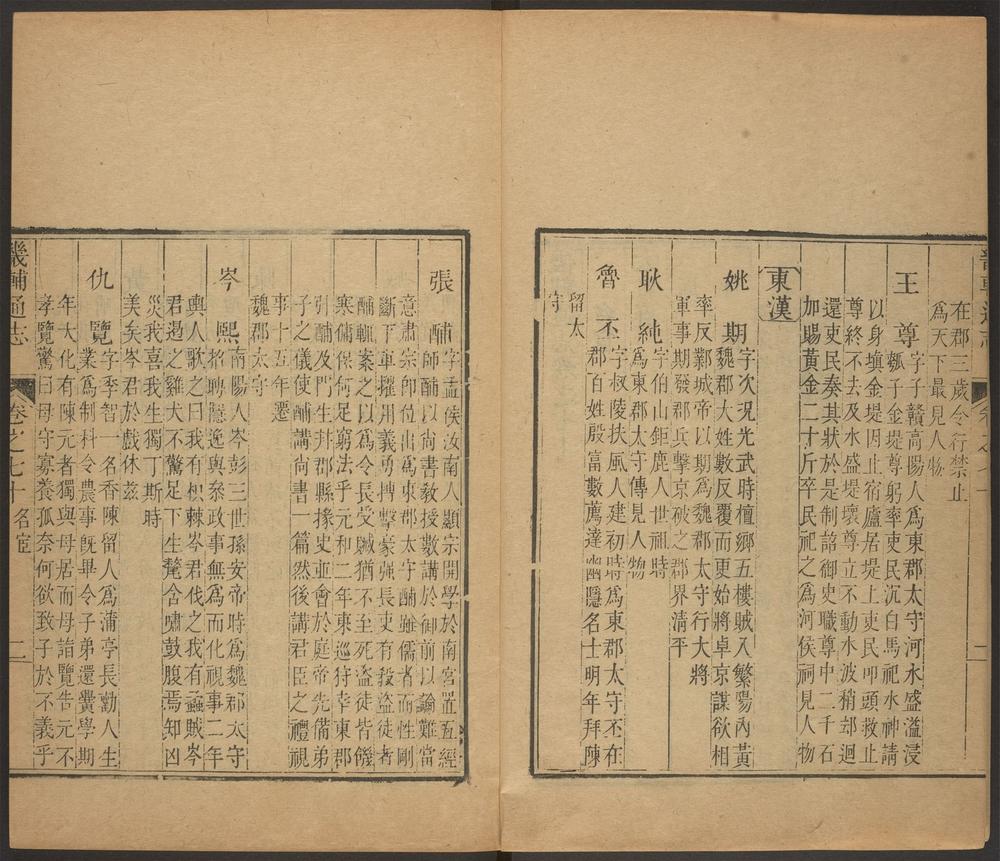 在郡三歲令行禁止
為天下最見人物
王尊字子贛高陽人為東郡太守河水盛溢浸
瓠子金堤尊躬率吏民沉白馬祀水神請
以身塡金堤因止宿廬居堤上吏民叩頭救止
尊終不去及水盛堤壞尊立不動水波稍却迴
還吏民奏其狀於是制詔御史職尊中二千石
加賜黃金二十斤卒民祀之為河侯祠見人物
東漢
姚期字次況光武時檀鄉五樓賊入繁陽內黃
魏郡大姓數反覆而更始將卓京謀欲相
率反鄴城帝以期為魏郡太守行大將
軍事期發郡兵擊京破之郡界清平
耿純字伯山鉅鹿人世祖時
為東郡太守傳見人物
魯丕字叔陵扶風人建初時為東郡太守丕在
郡百姓殷富數薦達幽隱名士明年拜陳
留太
守
張酺字孟侯汝南人顯宗開學於南宮置五經
師酺以尚書教授數講於御前以論難當
意肅宗卽位出為東郡太守酺雖儒者而性剛
斷下車擢用義勇搏擊豪强長吏有殺盜徒者
酺輒案之以為令長受贓猶不至死盜徒皆饑
寒傭保何足窮法乎元和二年東巡狩幸東郡
引酺及門生幷郡縣掾史並會於庭帝先備弟
子之儀使酺講尚書一篇然後講君臣之禮視
事十五年遷
魏郡太守
岑熙南陽人岑彭三世孫安帝時為魏郡太守
招聘隱逸與叅政事無為而化視事二年
輿人歌之曰我有枳棘岑君伐之我有蟊賊岑
君遏之雞犬不驚足下生氂含哺鼓腹焉知凶
災我喜我生獨丁斯時
美矣岑君於戲休茲
仇覽字季智一名香陳留人為蒲亭長勸人生
業為制科令農事旣畢令子弟還黌學期
年大化有陳元者獨與母居而母詣覽告元不
孝覽驚曰母守寡養孤奈何欲致子於不義乎
畿輔通志
卷之七十名宦
二